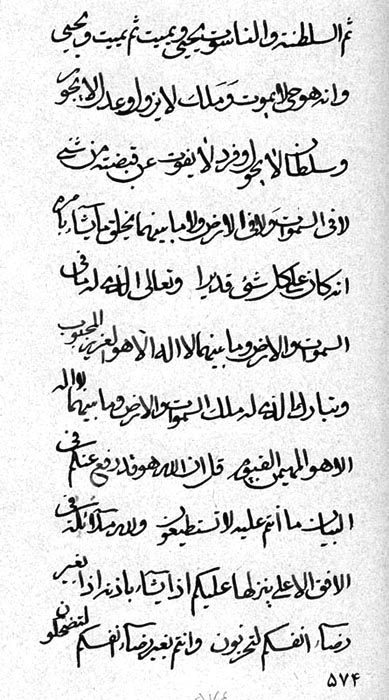 ثم السلطنة والناسوت يحيي ويميت ثم يميت ويحيي
وانه هو حي لا يموت وملك لا يزول وعدل لا يجور
وسلطان لا يحول وفرد لا يفوت عن قبضته من شئ
لا في السموات ولا في الارض ولا ما بينهما يخلق ما يشاء بامره
انه كان على كل شئ قديرا وتعالى الذي له ما في
السموات والارض وما بينهما لا اله الا هو العزيز المحبوب
وتبارك الذي له ملك السموات والارض وما بينهما لا اله
الا هو المهيمن القيوم قل ان الله هو قد رفع عنكم في
البيان ما انتم عليه لا تستطيعون ولله ملائكة في
الافق الاعلى ينزلها عليكم اذا يشاء باذنه اذا بغير
رضاء انفسكم لتحزنون وانتم بغير رضاء انفسكم لتضحكون
۵۷۴